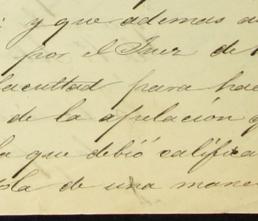 y que ademas
por el Juez de
facultad para hac
de la apelación
que debió califica
de una mane